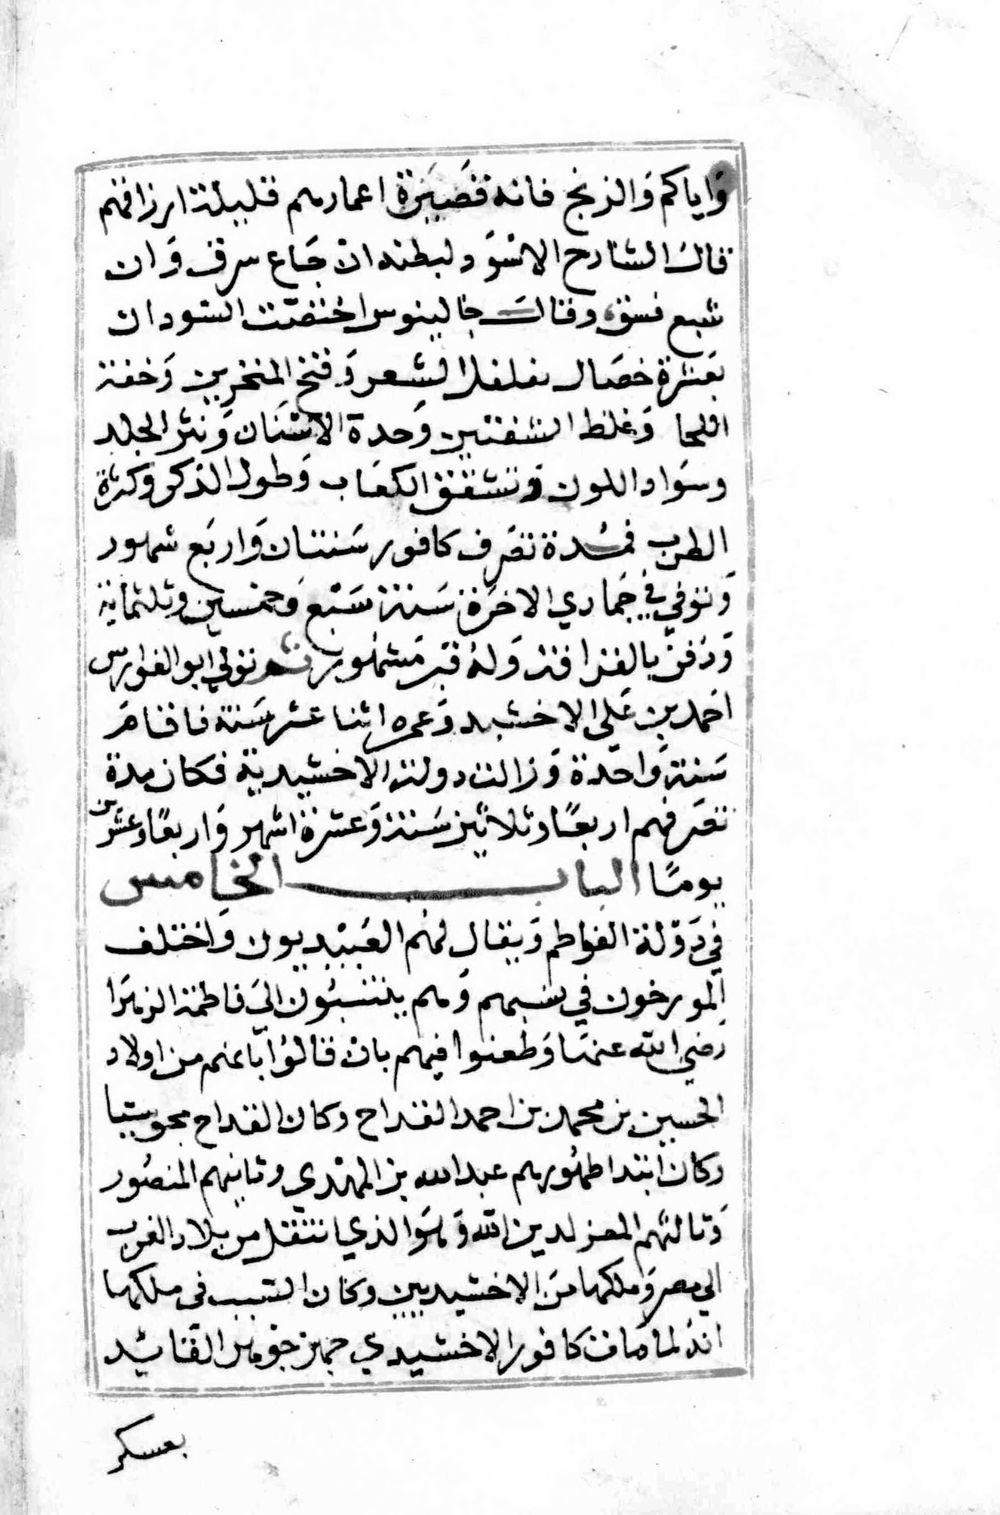 واياكم والزنج فانه قصيرة اعمارهم قليلة ارزاقهم
قال الشارح الاسود لبطنه ان جاع سرق وان
شبع فسق وقال جالينوس اختصت السودان
بعشرة خصال تفلفل الشعر وفتح المنخرين وخفة
اللحا وغلط الشفتين وحدة الاسنان ونتن الجلد
وسواد اللون وتشقق الكعاب وطول الذكر وكثرة
الطرب فمدة تصرف كافور سنتان واربع شهور
وتوفي في جمادي الاخرة سنة سبع وخمسين وثلثماية
ودفن بالقرافة وله قبر مشهور ثم تولي ابو الفوارس
احمد بن علي الاخشيد وعمره اثنا عشر سنة فاقام
سنة واحدة وزالت دولة الاخشيدية فكان مدة
تصرفهم اربعا وثلاثين سنة وعشرة اشهر واربعا وعشرين
يوما الباب الخامس
في دولة الفواطم ويقال لهم العبيديون واختلف
المورخون في نسبهم وهم ينتسبون الي فاطمة الزهرا
رضي الله عنها وطعنوا فيهم بان قالوا انهم من اولاد
الحسين بن محمد بن احمد القداح وكان القداح مجوسيا
وكان ابتدا ظهورهم عبد الله بن المهدي وثانيهم المنصور
وثالثهم المعز لدين الله وهو الذي انتقل من بلاد الغرب
الي مصر وملكها من الاخشيديين وكان السبب في ملكها
انه لما مات كافور الاخشيدي جهز جوهر القائد
بعسكر